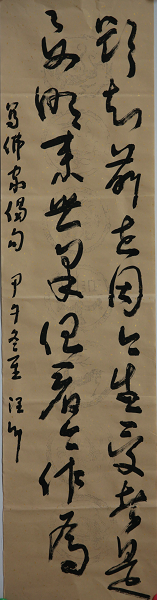 欲知前世因今生受者是
要明来世果但看今作为
写佛家偈句 甲午冬至 汪